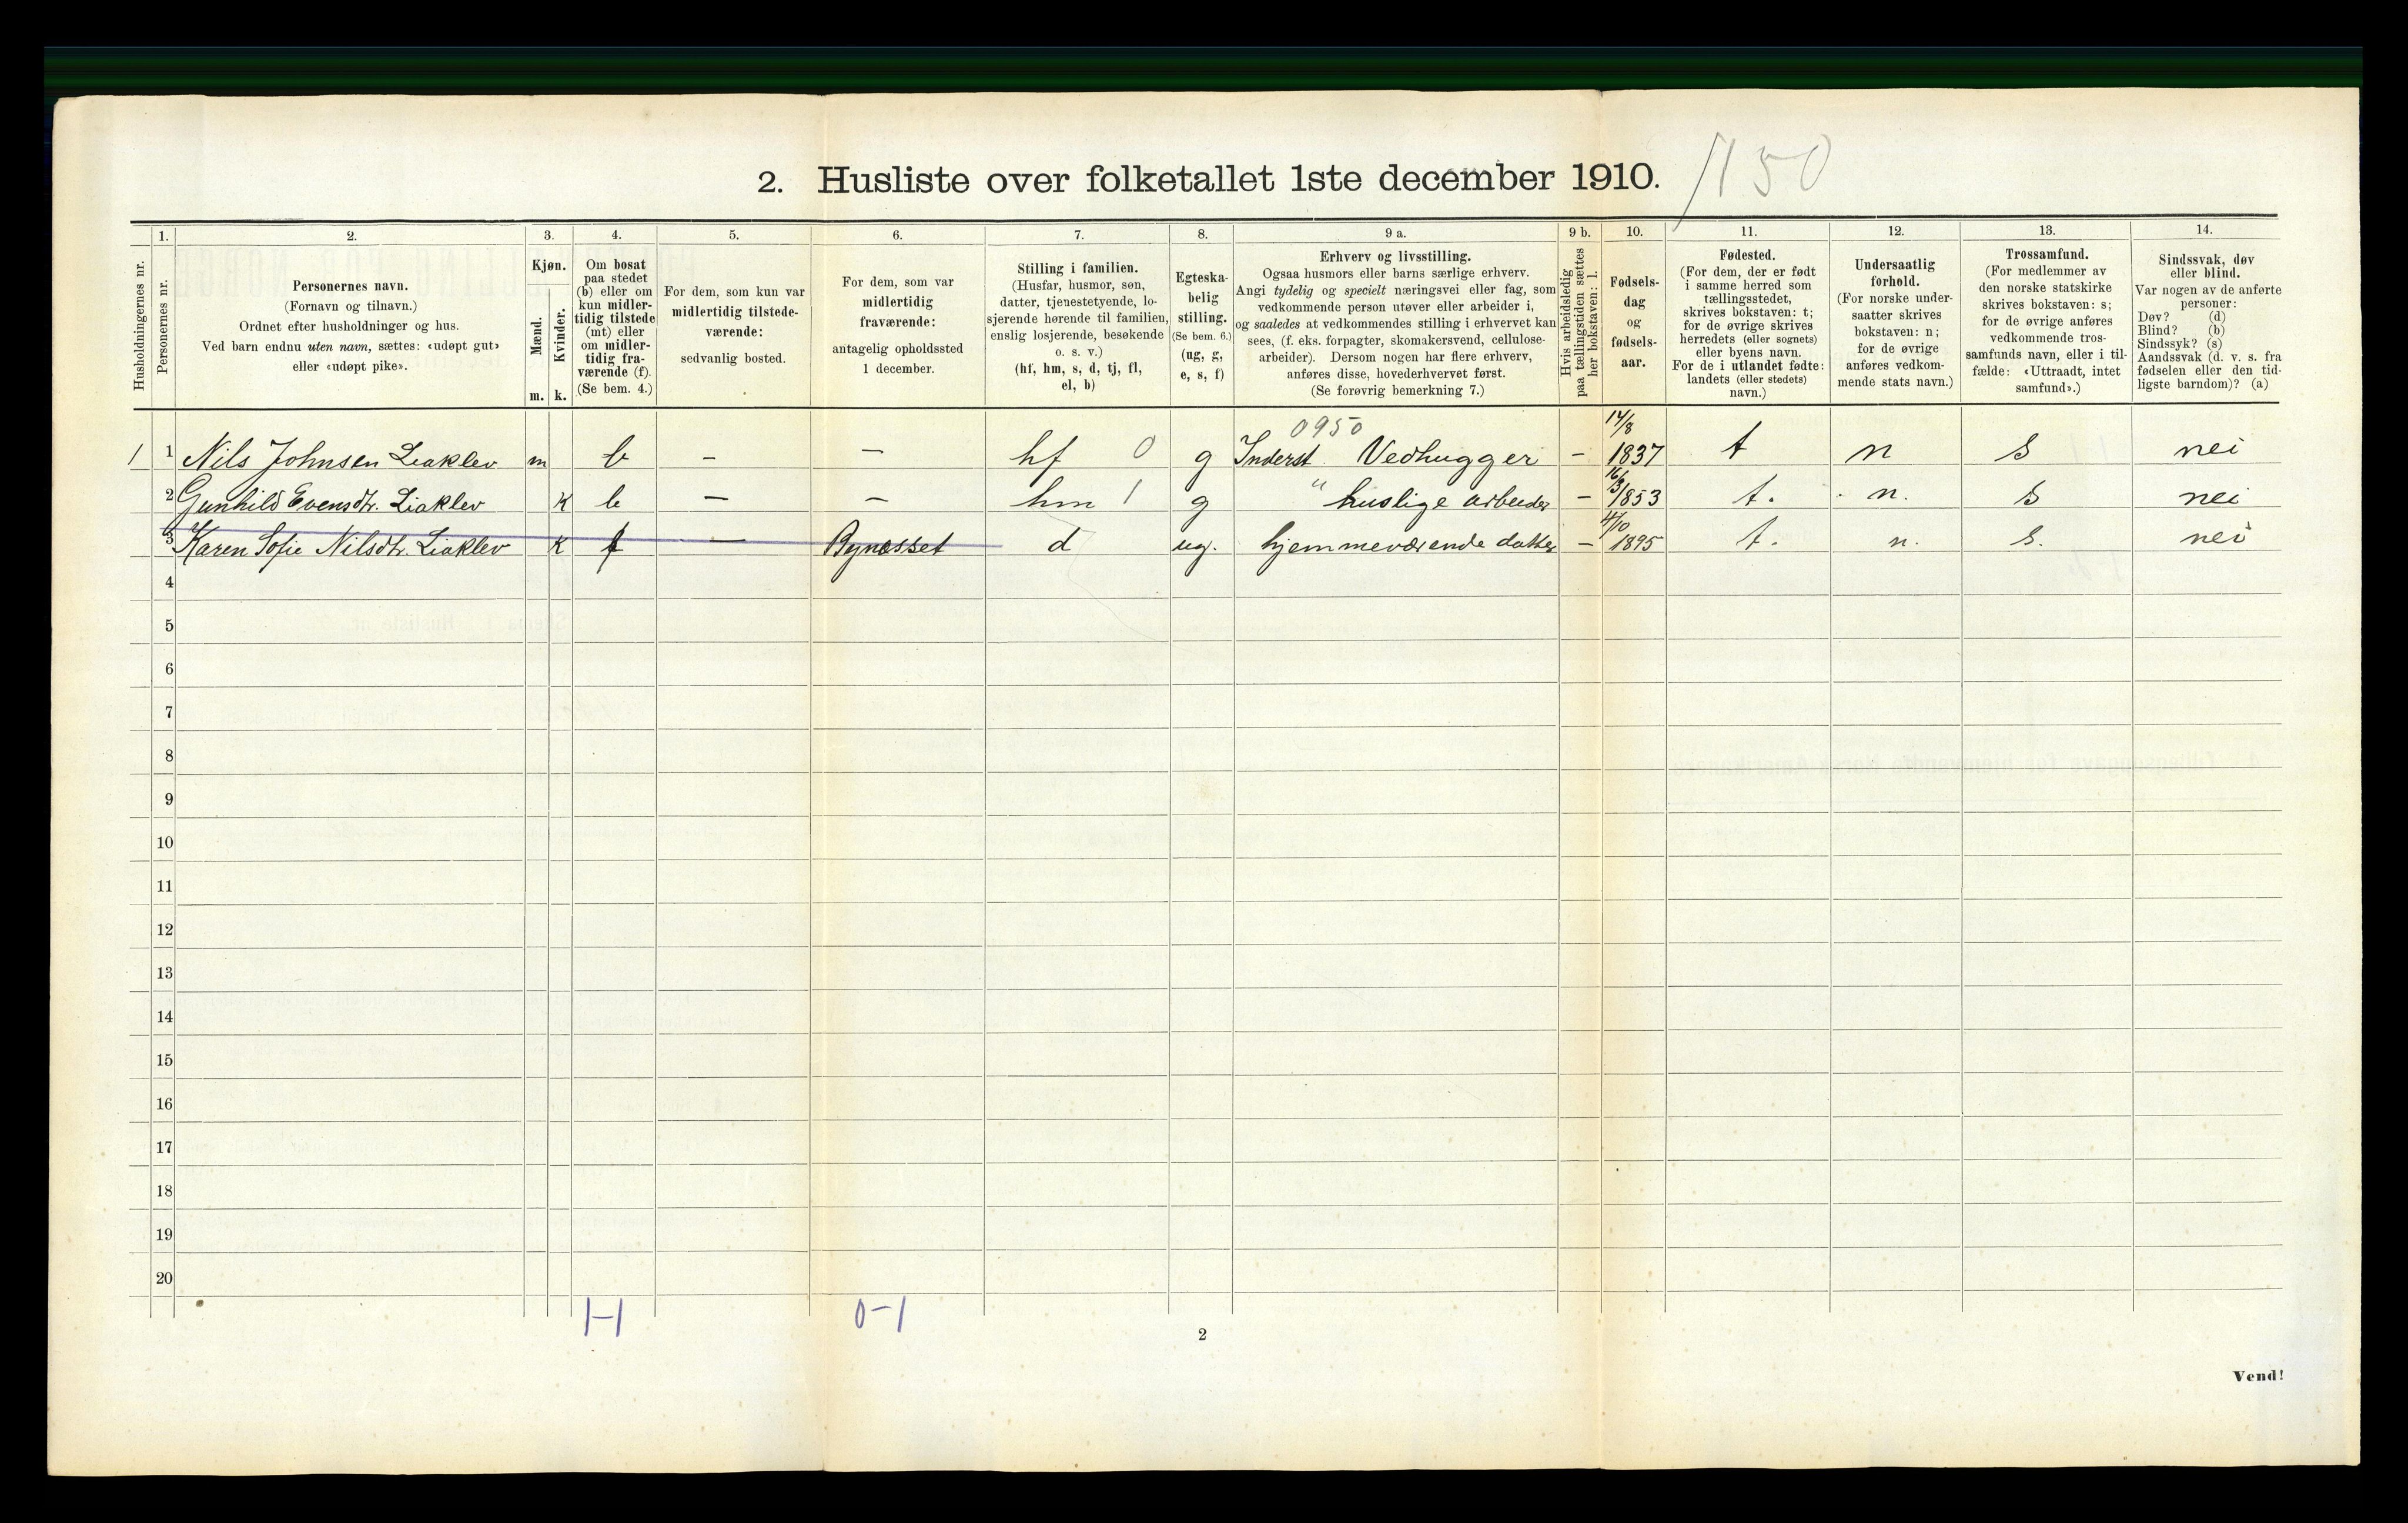 2. Husliste over folketallet 1ste december 1910. 150
1. 2. 3. 4. 5. 6. 7. 8. 9 a. 9 b. 10. 11. 12. 13. 14.
Husholdningernes nr.
Personernes nr.
Personernes navn.
(Fornavn og tilnavn.)
Ordnet efter husholdninger og hus.
Ved barn endnu uten navn, sættes: «udøpt gut»
eller «udøpt pike».
Kjøn.
Mænd.
Kvinder.
m. k.
Om bosat
paa stedet
(b) eller om
kun midler-
tidig tilstede
(mt) eller
om midler-
tidig fra-
værende (f).
(Se bem. 4.)
For dem, som kun var
midlertidig tilstede-
værende:
sedvanlig bosted.
For dem, som var
midlertidig
fraværende:
antagelig opholdssted
1 december.
Stilling i familien.
(Husfar, husmor, søn,
datter, tjenestetyende, lo-
sjerende hørende til familien,
enslig losjerende, besøkende
o. s. v.)
(hf, hm, s, d, tj, fl,
el, b)
Egteska-
belig
stilling.
(Se bem. 6.)
(ug, g,
e, s, f)
Erhverv og livsstilling.
Ogsaa husmors eller barns særlige erhverv.
Angi tydelig og specielt næringsvei eller fag, som
vedkommende person utøver eller arbeider i,
og saaledes at vedkommendes stilling i erhvervet kan
sees, (f. eks. forpagter, skomakersvend, cellulose-
arbeider). Dersom nogen har flere erhverv,
anføres disse, hovederhvervet først.
(Se forøvrig bemerkning 7.)
Hvis arbeidsledig
paa tællingstiden sættes
her bokstaven: l.
Fødsels-
dag
og
fødsels-
aar.
Fødested.
(For dem, der er født
i samme herred som
tællingsstedet,
skrives bokstaven: t;
for de øvrige skrives
herredets (eller sognets)
eller byens navn.
For de i utlandet fødte:
landets (eller stedets)
navn.)
Undersaatlig
forhold.
(For norske under-
saatter skrives
bokstaven: n;
for de øvrige
anføres vedkom-
mende stats navn.)
Trossamfund.
(For medlemmer av
den norske statskirke
skrives bokstaven: s;
for de øvrige anføres
vedkommende tros-
samfunds navn, eller i til-
fælde: «Uttraadt, intet
samfund».)
Sindssvak, døv
eller blind.
Var nogen av de anførte
personer:
Døv? (d)
Blind? (b)
Sindssyk? (s)
Aandssvak (d. v. s. fra
fødselen eller den tid-
ligste barndom)? (a)
0950 14/8
1 1 Nils Johnsen Liaklev m b – – hf 0 g Inderst. Vedhugger – 1837 t n s nei
2 Gunhild Evensdtr. Liaklev k b – – hm 1 g " huslige arbeider – 16/3 1853 t. n. s nei
3 Karen Sofie Nilsdtr. Liaklev k f – Bynesset d ug. hjemmeværende datter – 4/10 1895 t. n. s. nei
4
5
6
7
8
9
10
11
12
13
14
15
16
17
18
19
20
1–1 0–1
2
Vend!